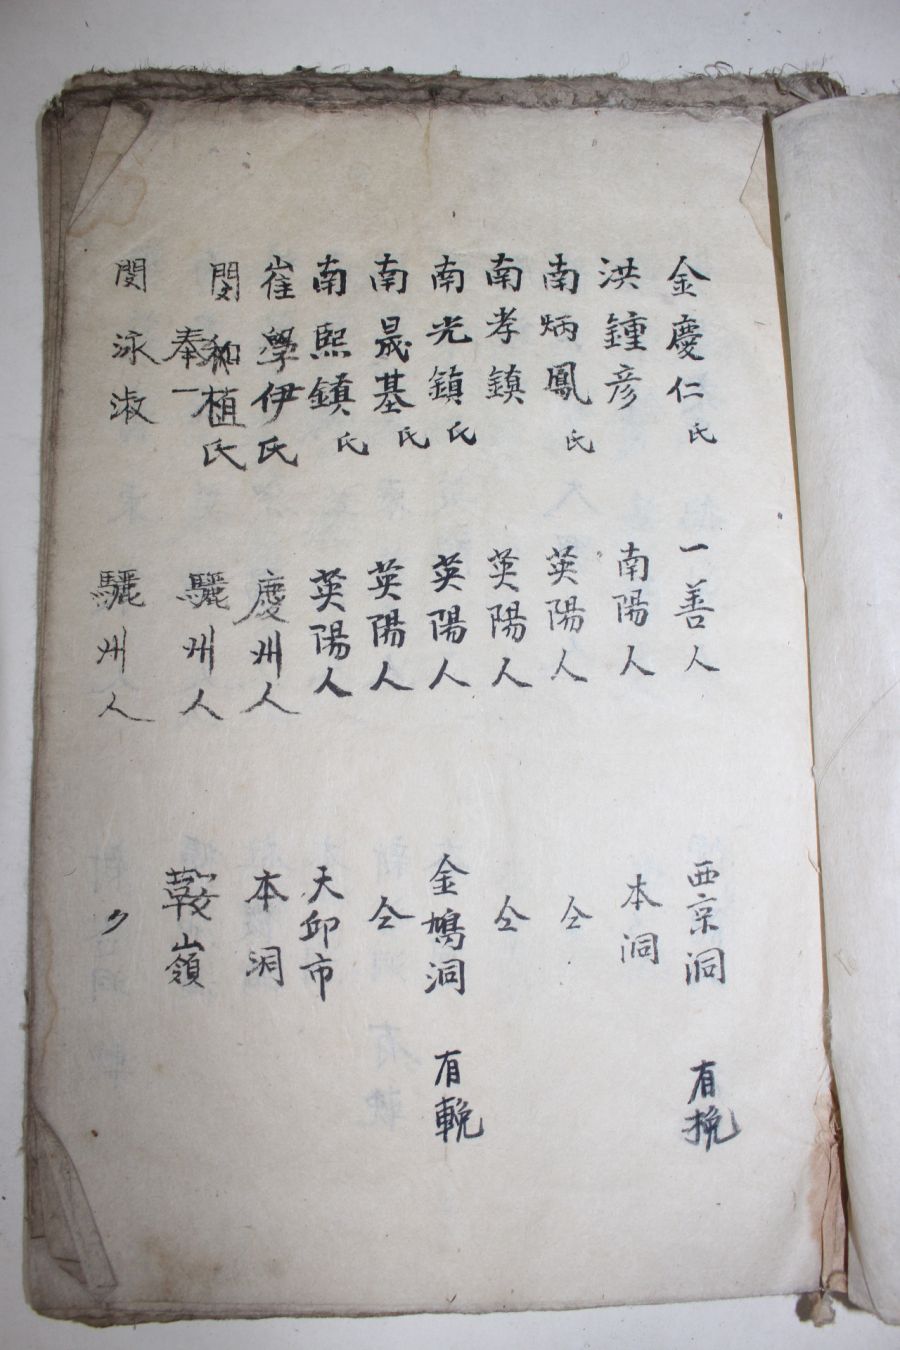 金慶仁氏 一善人 西京洞 有挽
洪鍾彦 南陽人 本洞
南炳鳳氏 英陽人 仝
南孝鎮 英陽人 仝
南光鎮氏 英陽人 金鳩洞 有輓
南晟基氏 英陽人 仝
南熙鎮氏 英陽人 天邱市
崔學伊氏 慶州人 本洞
閔和植氏 奉一 驪州人 鞍嶺
閔泳淑 驪州人 〃